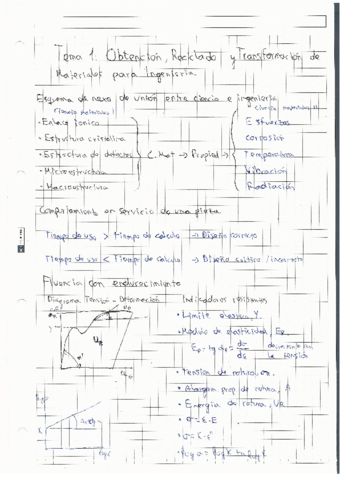 Tema 1: Obtención, Reciclado y Transformación de
Materiales para Ingeniería.
Esquema de nexo de unión entre ciencia e ingeniería
• Enlace iónico
• Estructura cristalina
• Estructura de defectos
• Microestructura
• Macroestructura
C. Mat → Propied →
Esfuerzos
Corrosión
Temperatura
Vibración
Radiación
Comportamiento en Servicio de una pieza
Tiempo de uso > Tiempo de calculo → Diseño correcto
Tiempo de uso < Tiempo de calculo → Diseño crítico / incorrecto
Fluencia con endurecimiento
Diagrama Tensión - Deformación
Indicadores resistentes
• Límite elástico, Y
• Módulo de elasticidad, E
• Tensión de rotura, σ
• Alargam prop de rotura, A
• Energía de rotura, UR
• σ = E·ε